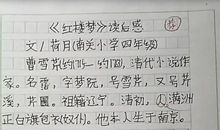 《红楼梦》读后感
文/荷月(南关小学四年级)
曹雪芹约1715—约1763),清代小说作
家。名霑,字梦阮,号雪芹,又号芹
溪,芹圃。祖籍辽宁。清初,入满洲
正白旗包衣(奴仆)。他本人生于南京。